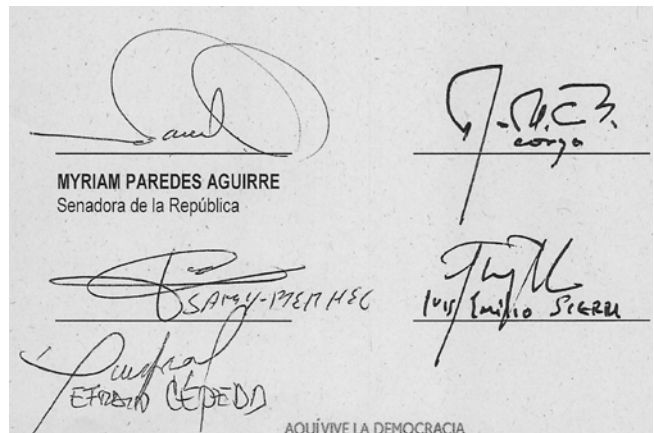 MYRIAM PAREDES AGUIRRE
Senadora de la República
corzo
SAMY-MERHEG
LUIS Emilio SIERRA
EFRAIN CEPEDA
AQUÍ VIVE LA DEMOCRACIA